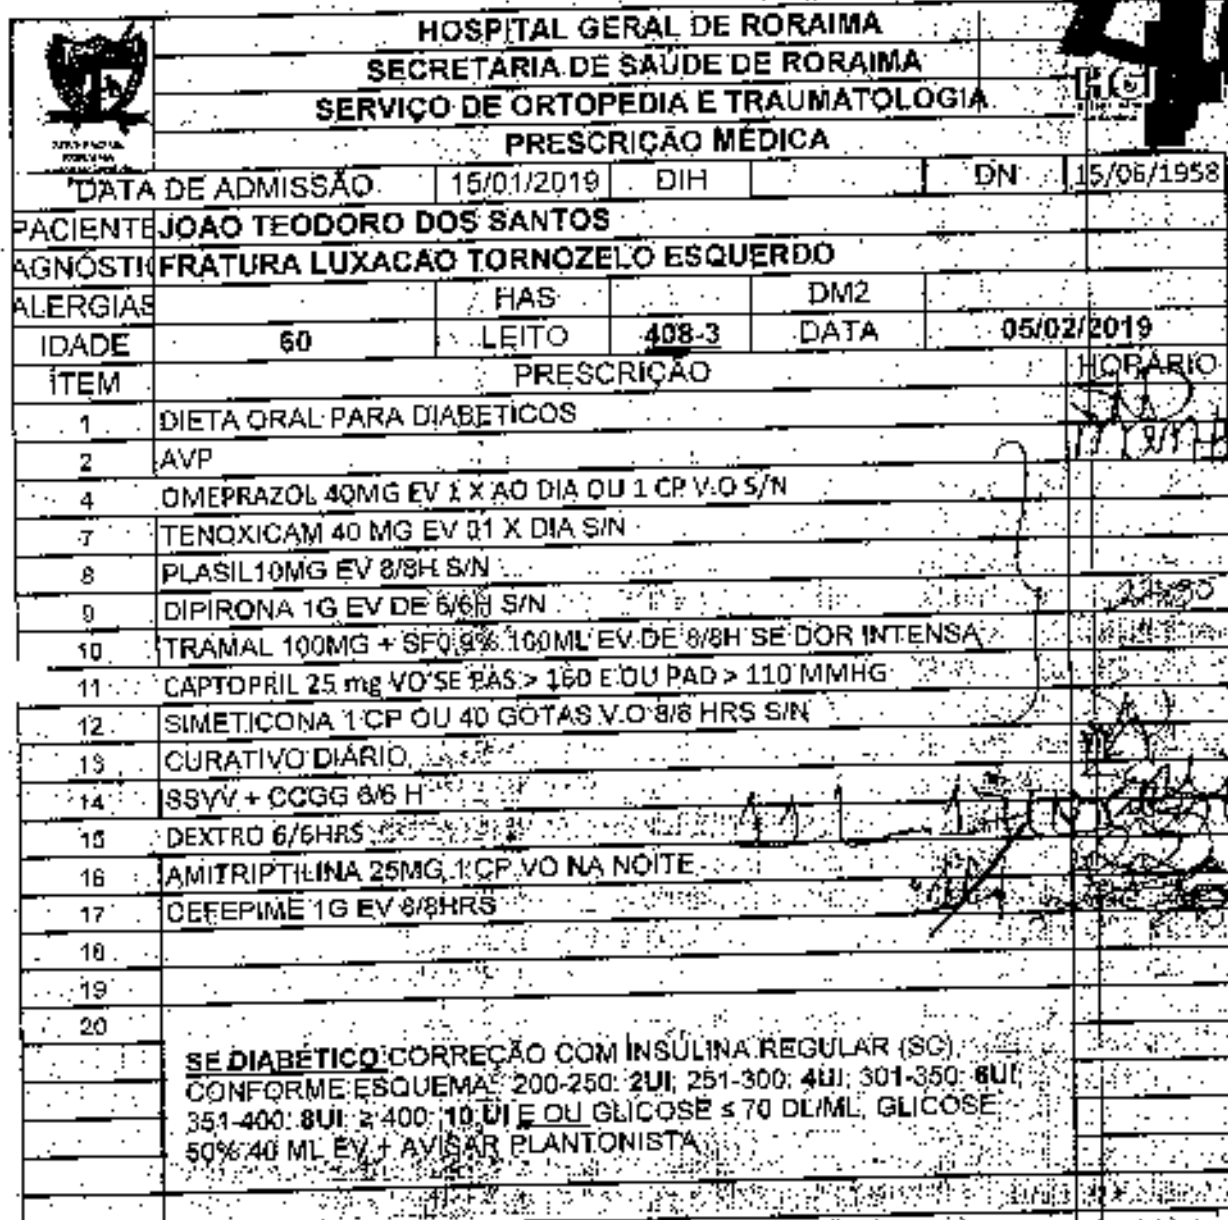 HOSPITAL GERAL DE RORAIMA
SECRETARIA DE SAÚDE DE RORAIMA
SERVIÇO DE ORTOPEDIA E TRAUMATOLOGIA
PRESCRIÇÃO MÉDICA
DATA DE ADMISSÃO 15/01/2019 DIH DN 15/06/1958
PACIENTE JOAO TEODORO DOS SANTOS
AGNÓSTI FRATURA LUXACAO TORNOZELO ESQUERDO
ALERGIAS HAS DM2
IDADE 60 LEITO 408-3 DATA 05/02/2019
ÍTEM PRESCRIÇÃO HORÁRIO
1 DIETA ORAL PARA DIABETICOS
2 AVP
4 OMEPRAZOL 40MG EV 1 X AO DIA OU 1 CP V.O S/N
7 TENOXICAM 40 MG EV 01 X DIA S/N
8 PLASIL 10MG EV 8/8H S/N
9 DIPIRONA 1G EV DE 6/6H S/N
10 TRAMAL 100MG + SF0,9% 100ML EV DE 8/8H SE DOR INTENSA
11 CAPTOPRIL 25 mg VO SE PAS > 160 E OU PAD > 110 MMHG
12 SIMETICONA 1 CP OU 40 GOTAS V.O 8/8 HRS S/N
13 CURATIVO DIÁRIO
14 SSVV + CCGG 6/6 H
15 DEXTRO 6/6HRS
16 AMITRIPTILINA 25MG 1 CP VO NA NOITE
17 CEFEPIME 1G EV 8/8HRS
18
19
20
SE DIABÉTICO CORREÇÃO COM INSULINA REGULAR (SC),
CONFORME ESQUEMA: 200-250: 2UI; 251-300: 4UI; 301-350: 6UI;
351-400: 8UI; ≥ 400: 10 UI E OU GLICOSE ≤ 70 DL/ML, GLICOSE
50% 40 ML EV + AVISAR PLANTONISTA